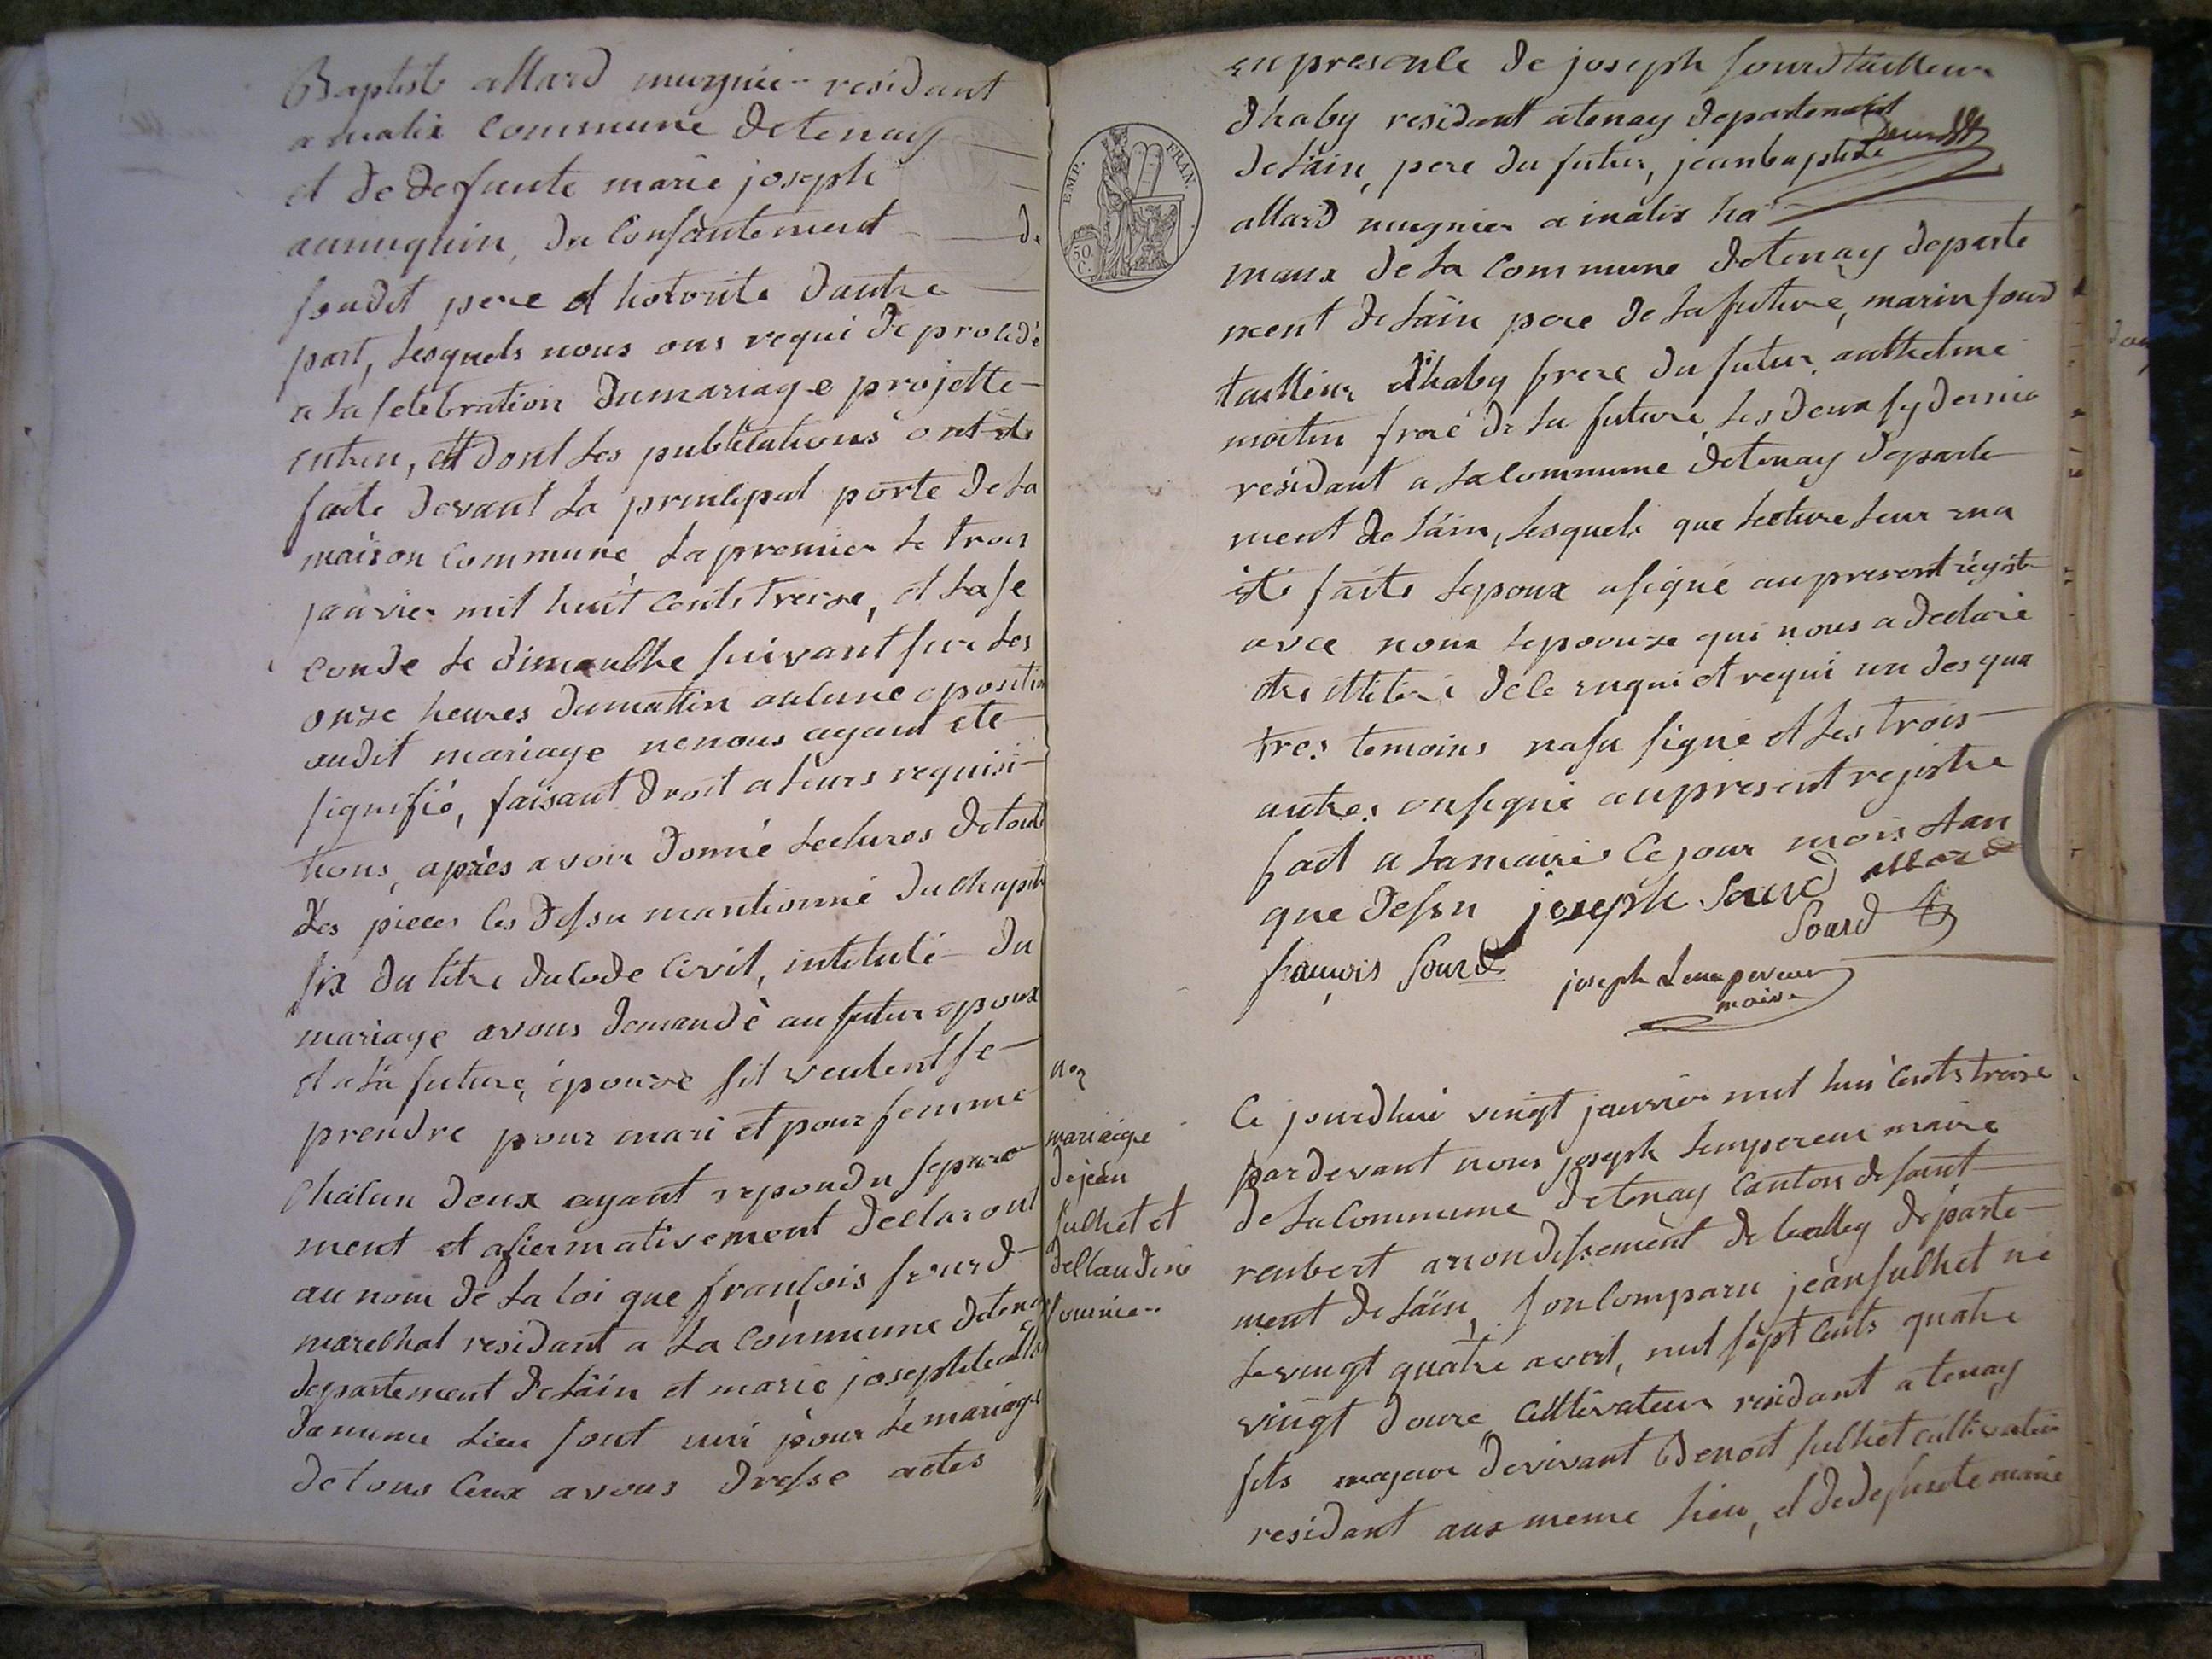 Baptist allard mugnier residant
a malix Commune detenay
et de defunte marie joseph
annuquin, du Consantement de
soudit pere et hotorite dautre
part, lesquels nous ons requi de procedé
a la selebration dumariage projette
entreu, et dont les publications ont ete
faite devant la principal porte de la
maison commune la premier le trois
janvier mil huit cents treize, et la se
conde le dimanche suivant sur les
onze heures dumattin aucune oposition
audit mariage nenous ayant ete
signifié, faisant droit a leurs requisi
tions, après avoir donné lectures detoute
les pieces les dessu mantionné du chapitre
six du titre du code civil, intitulé du
mariage avons demandè au futur epoux
et a la future, épouze sil veulent se
prendre pour mari et pour femme
chacun deux ayant repondu separe
ment et afiermativement declaront
au nom de la loi que françois sourd
marechal residant a la commune detenay
departement de lain et marie josephte allard
dememe lieu sont uni pour le mariage
de tous ceux avons dresse actes
EMP. FRAN.
50 C.
en presence de joseph sourd tailleur
dhaby residant a tenay departement
de lain, pere du futur, jean baptiste
allard mugnier a malix ha
maux de la commune detenay departe
ment de lain pere de la future, marin sourd
tailleur dhaby frere du futur, anthelme
matin frere de la future, les deux sy dernie
residant a la commune detenay departe
ment de lain, lesquels que lecture leur ena
été faite lepoux asigné au present régistre
avec nous lepouuze qui nous a declaré
etre illiteré de ce enqui et requi un des qua
tres temoins nasu signé et les trois
autres onsigné aupresent registre
fait a lamairie ce jour mois et an
que dessu joseph Sourd allard
Sourd
françois Sourd joseph Lempereur
maire
no 2
mariaige
dejean
sulhet et
dellaudine
fournier
Ce jourdhui vingt janvier mil hui cents treize
pardevant nous joseph lempereur maire
de la commune detenay canton de saint
rembert arrondissement de belley departe
ment de lain, son comparu jean sulhet né
le vingt quatre avril, mil sept cents quatre
vingt douze cultivateur residant a tenay
fils majeur devivant Benoit sulhet cultivateur
residant aux meme lieu, et dedefunte marie